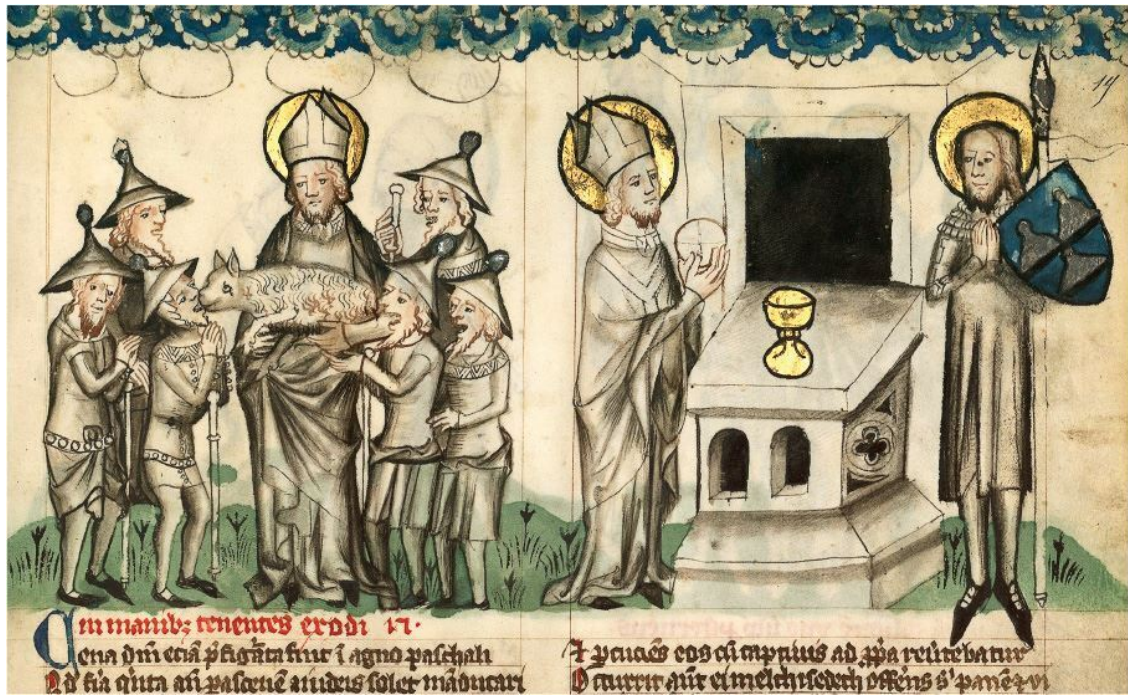 19
manibꝫ tenentes exodi 12.
Cena dñi eciā p̄figᵃta fuit ī agno paschali
fia q̄nta añ pascene a iudeis solet māducari
pcuciēs eos cū captiuis ad p̄pa reūtebatur
Occurrit aūt ei melchisedech offēns s' panē ⁊ vi